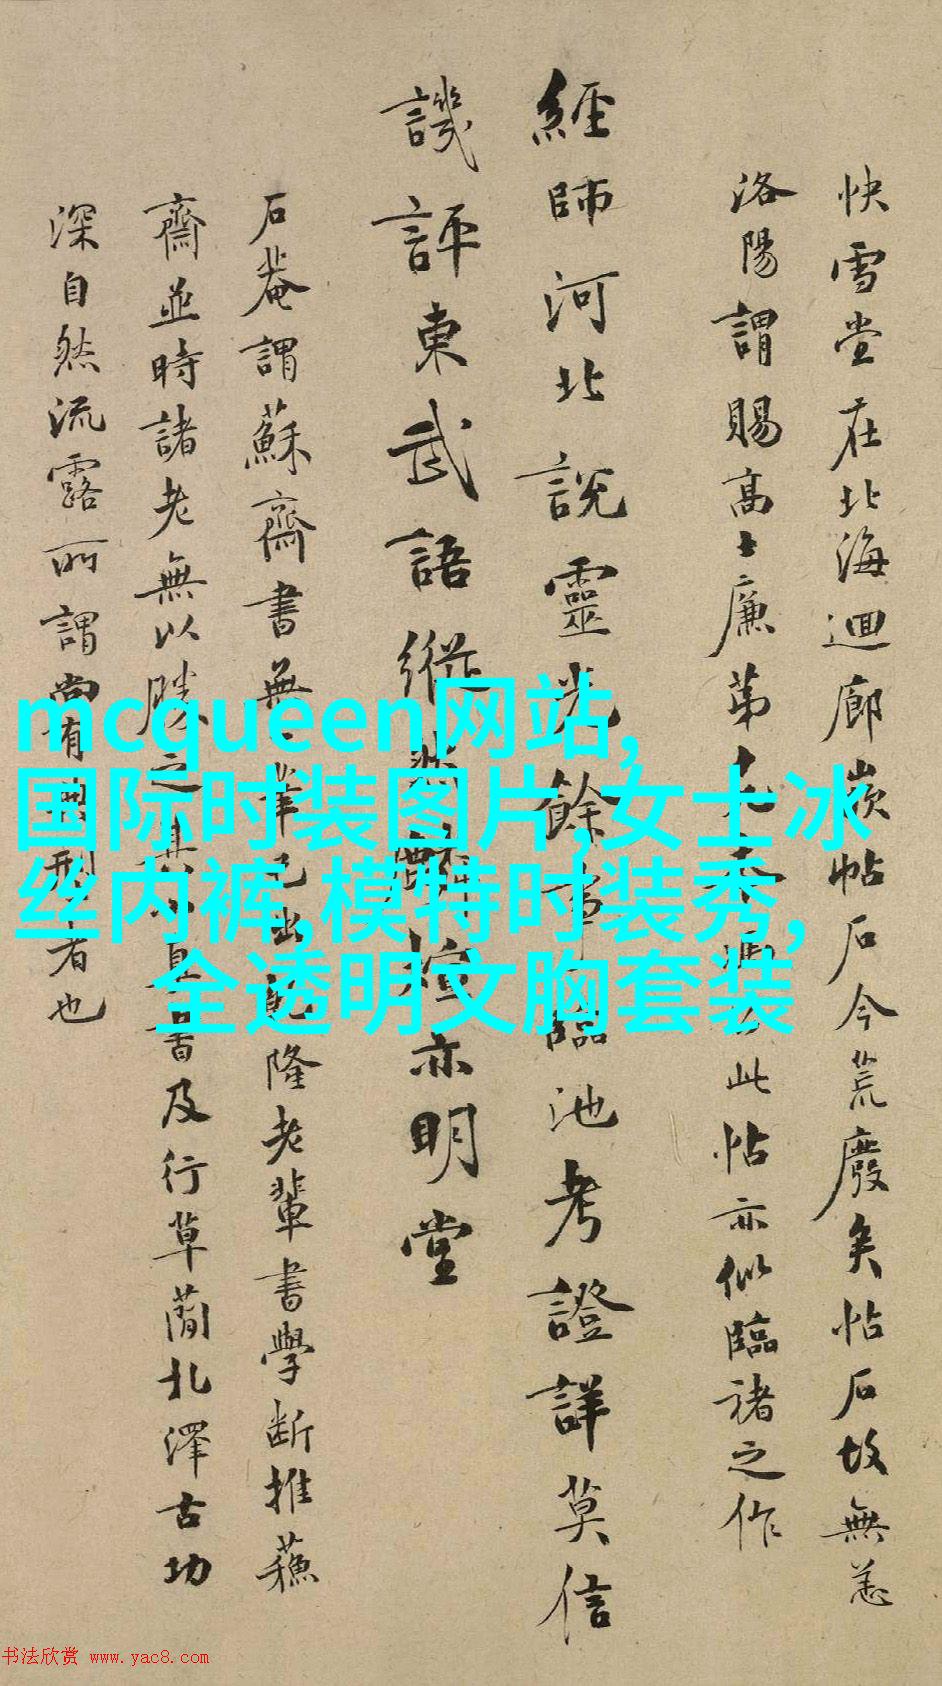 快雪堂在北海迴廊嵌帖石今荒廢矣帖石故無恙
洛陽謂賜高士廉第此帖亦似臨褚之作
經師河北說靈光餘事臨池考證詳莫信
譏評東武語縱亦明堂
石菴謂蘇齋書無一筆己出乾隆老輩書學斷推蘇
齋並時諸老無以勝之其真書及行草蕳北澤古功
深自然流露所謂尚有典型者也
mcqueen网站,
国际时装图片,女士冰
丝内裤,模特时装秀,
全透明文胸套装
书法欣赏 www.yac8.com